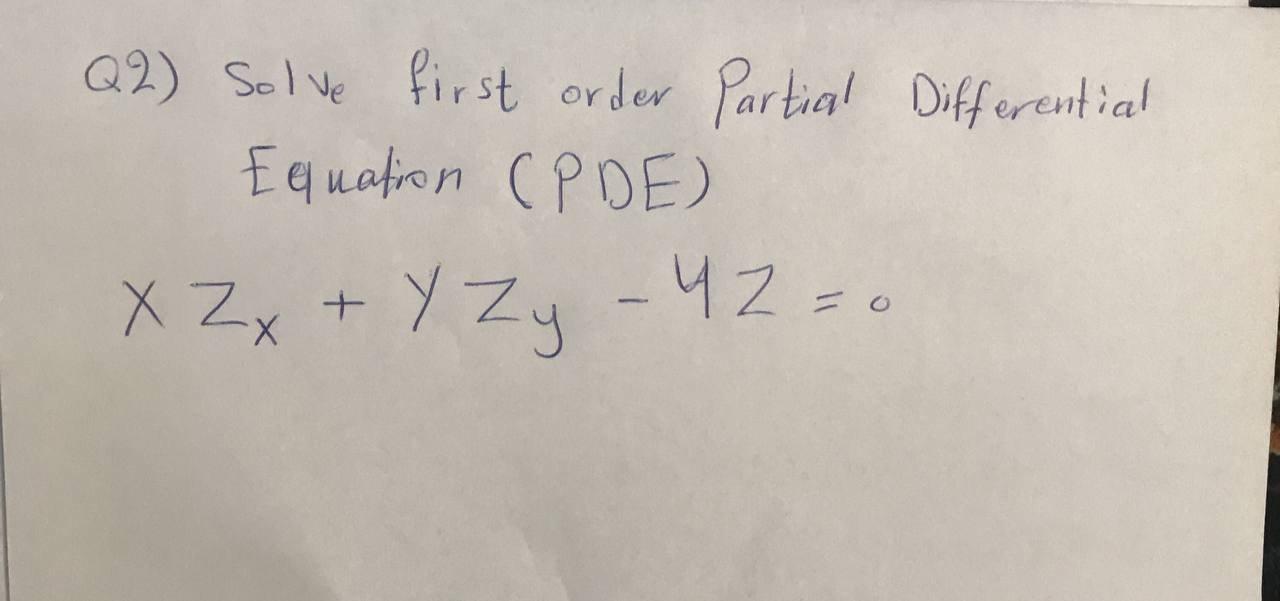 Q2) Solve first order Partial Differential
Equation (PDE)
x Zx + y Zy - 4 Z = 0